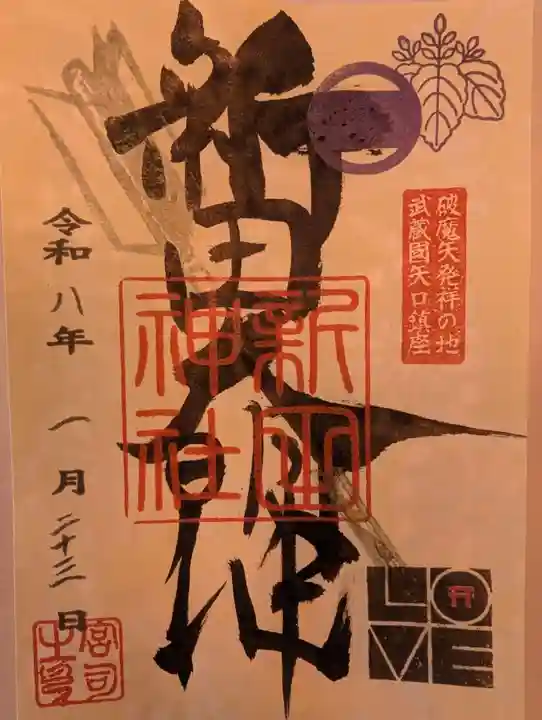 破魔矢発祥の地
武蔵國矢口鎮座
新田大神
新田
神社
令和八年 一月二十三日
宮司
之印
LO
VE